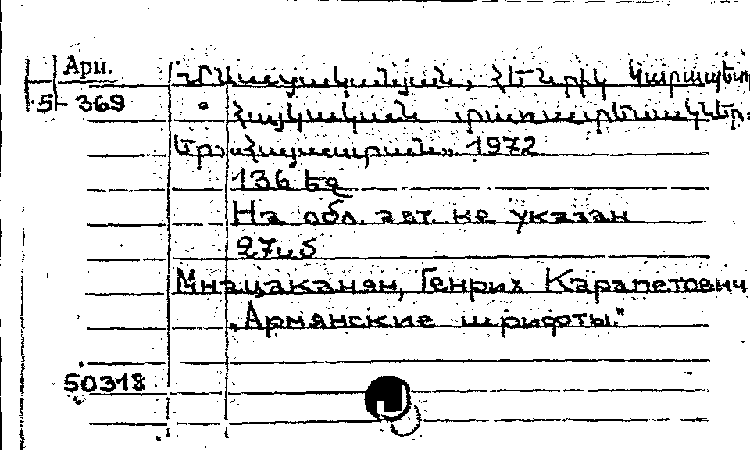 Ари.
Մնացականյան, Հենրիկ Կարապետ
5-369
Հայկական տառատեսակներ.
Եր., «Հայաստան», 1972
136 եջ
На обл. авт. не указан
27и5
Мнацаканян, Генрих Карапетович
"Армянские шрифты."
50318